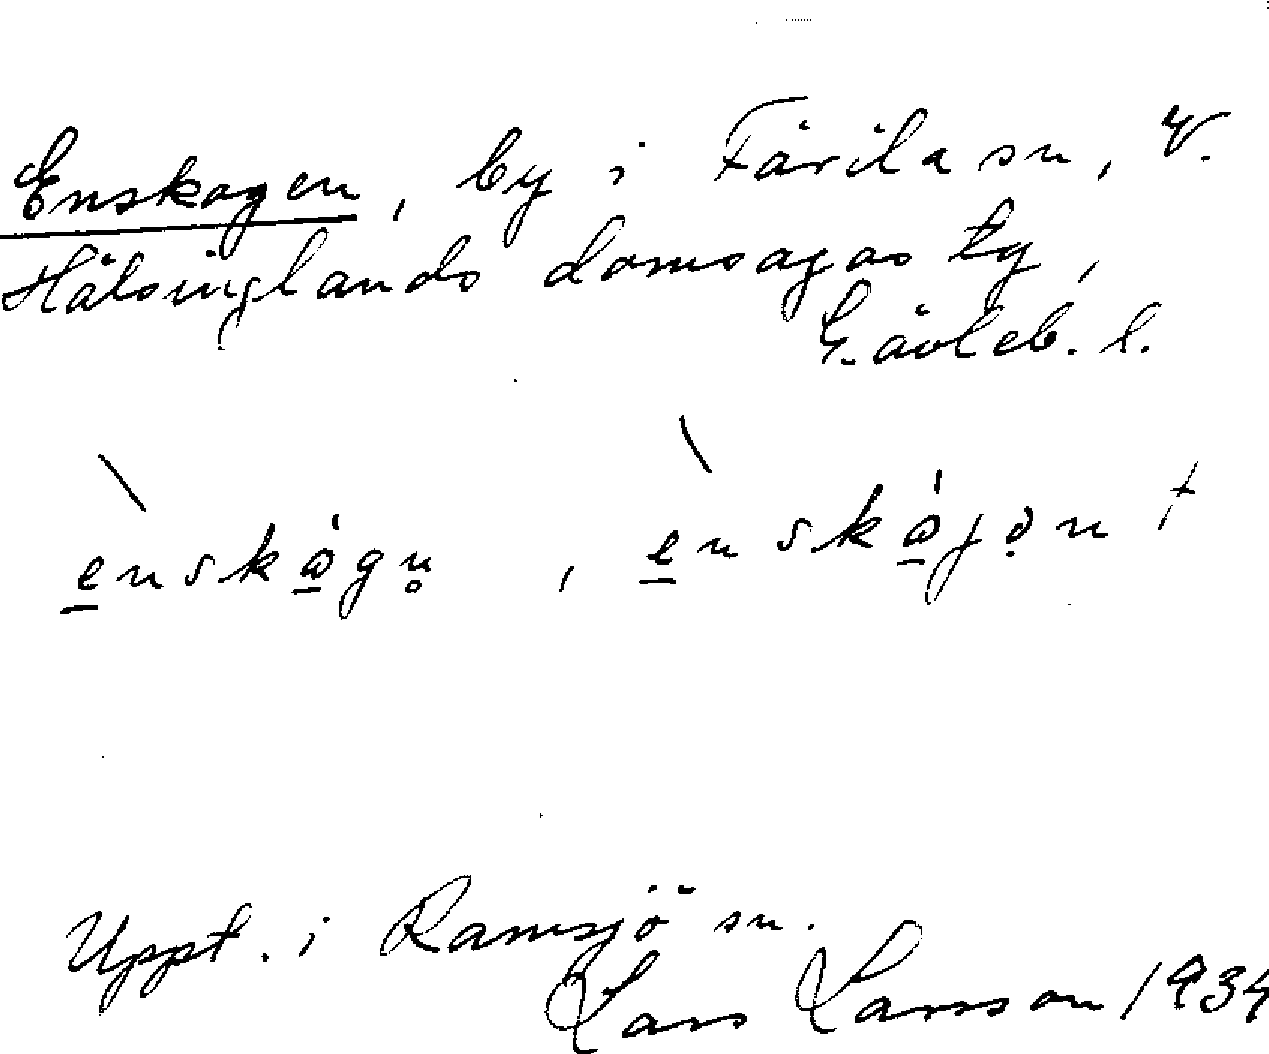 Enskogen, by i Färila sn, V.
Hälsinglands domsagas tg,
Gävleb. l.
ènskógn̥ , ènskójən †
Uppt. i Ramsjö sn.
Lars Larsson 1934